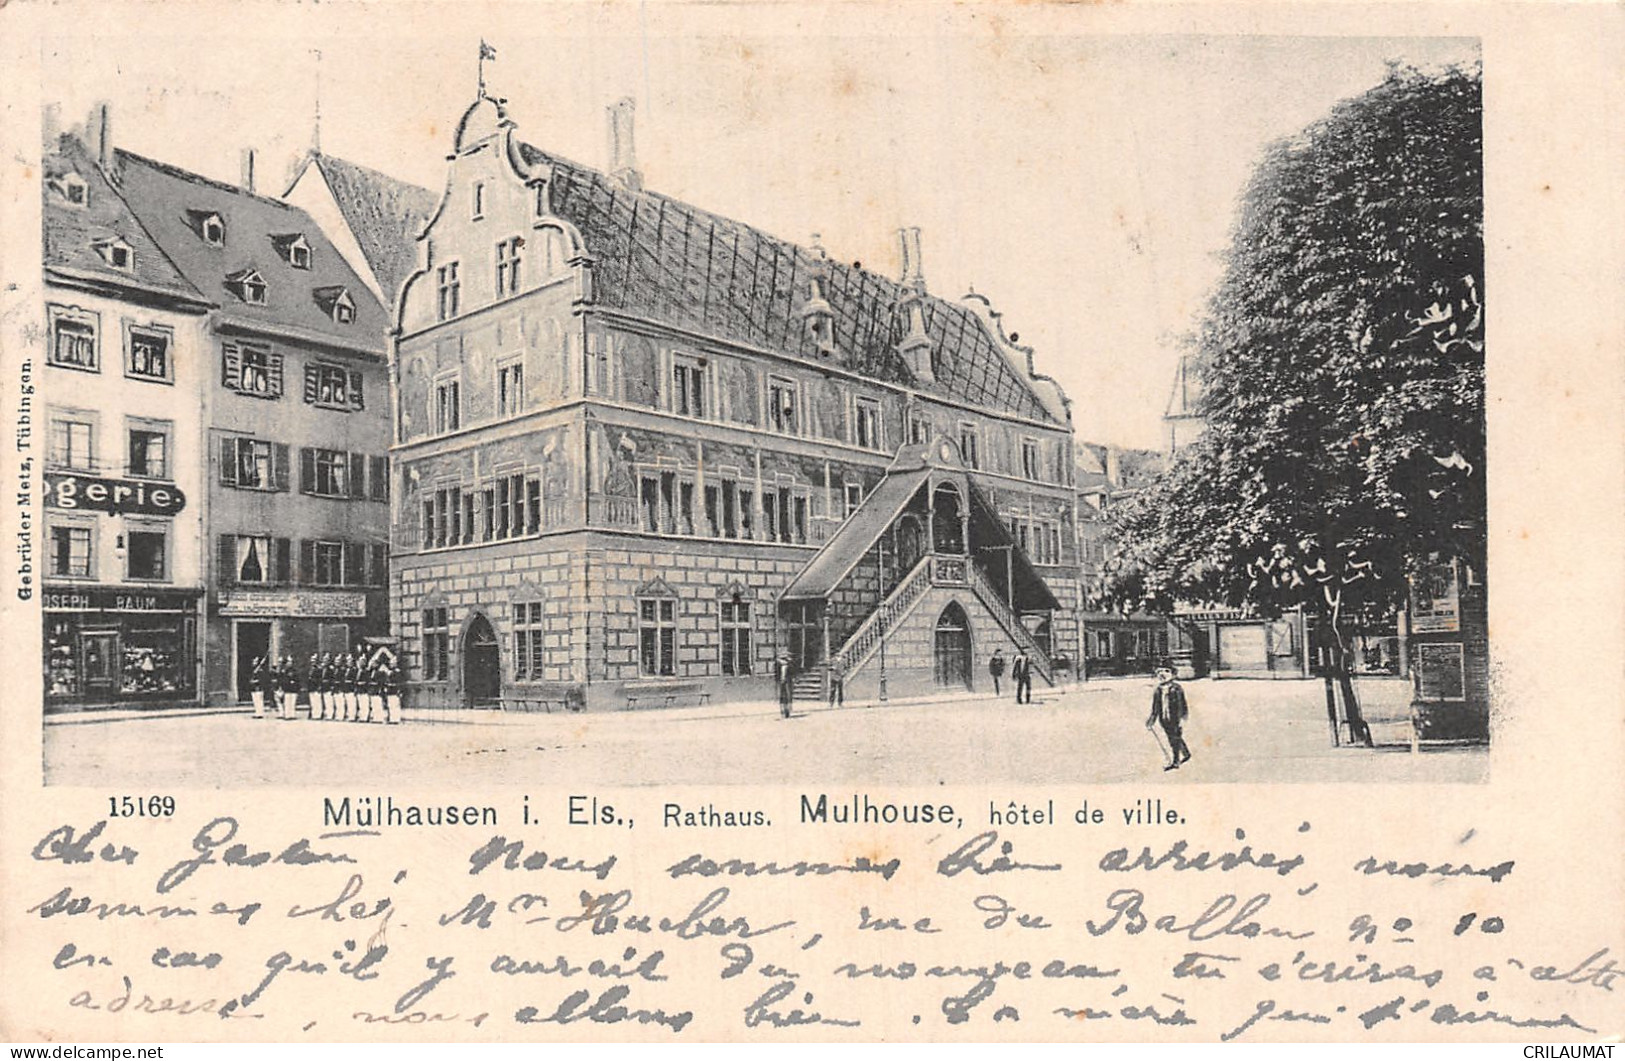 ogerie
OSEPH BAUM
Gebrüder Metz, Tübingen.
15169
Mülhausen i. Els., Rathaus. Mulhouse, hôtel de ville.
Cher Gaston, Nous sommes bien arrivés, nous
sommes chez Mr. Hueber, rue du Ballon no 10
en cas qu'il y aurait du nouveau, tu écriras à cette
adresse, nous allons bien. La mère qui t'aime
CRILAUMAT